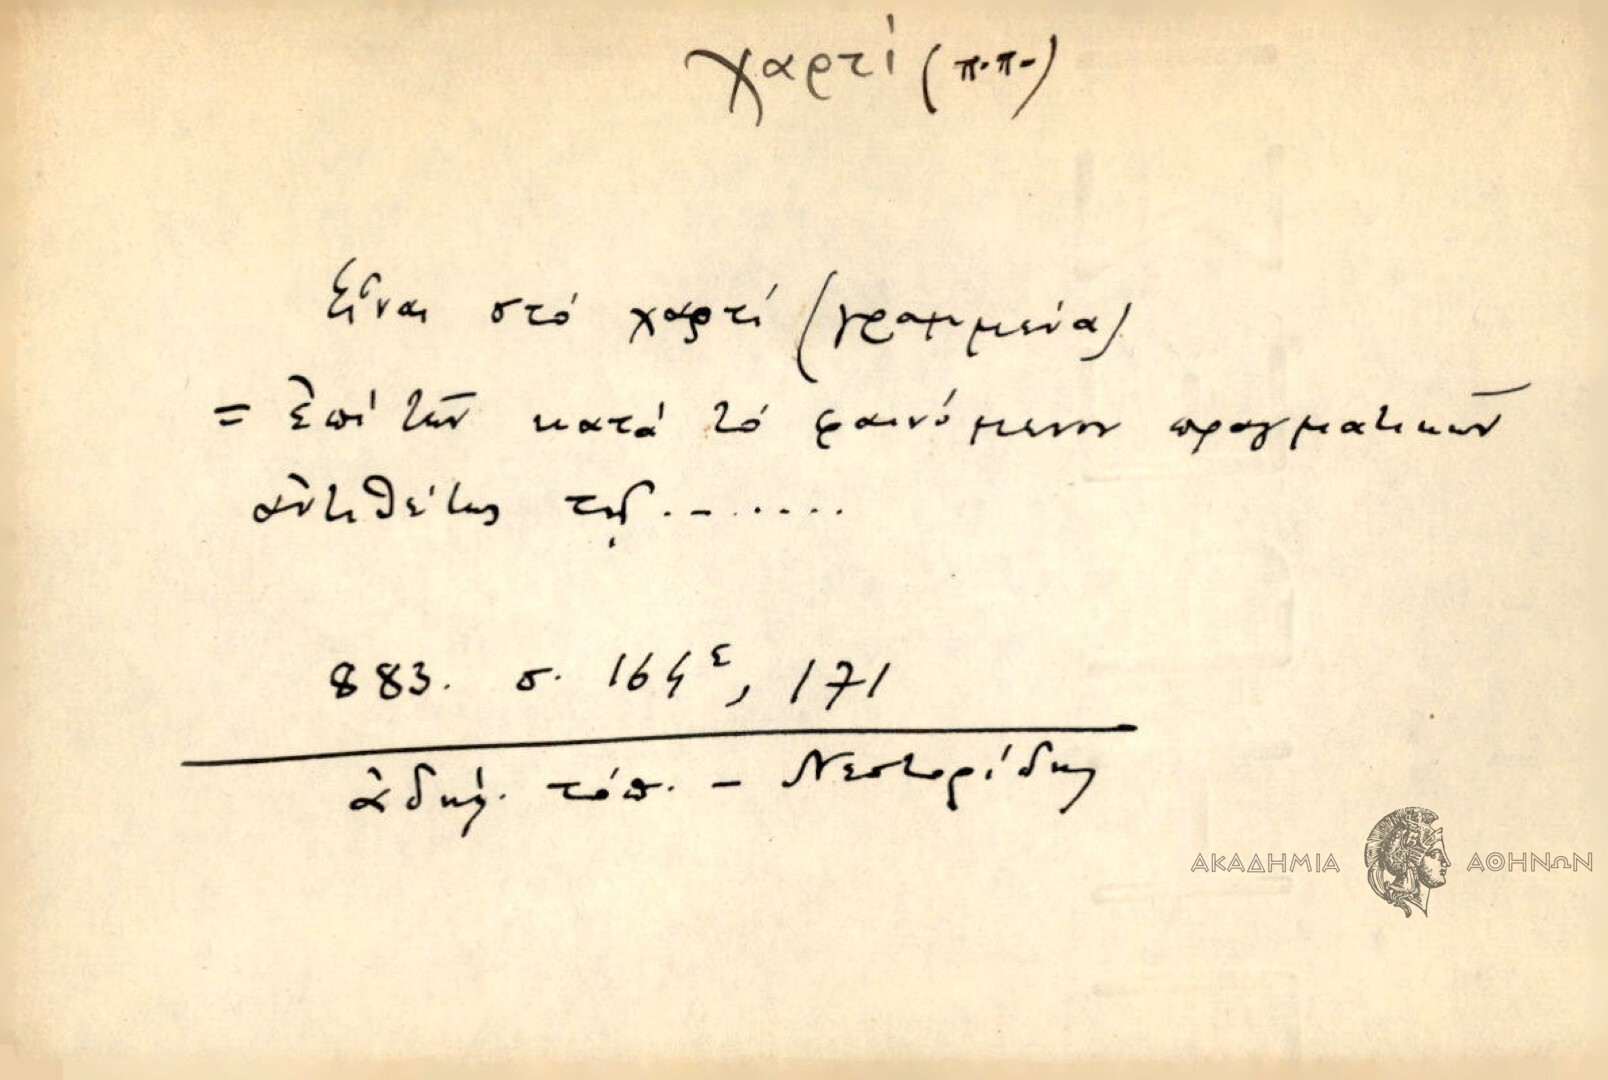 χαρτί (π.π.)
Εἶναι στό χαρτί (γραμμένα)
= ἐπί τῶν κατά τό φαινόμενον πραγματικῶν
ἀντιθέτως
883. σ. 164ε, 171
ἀδήλ. τόπ. - Νεστορίδης
ΑΚΑΔΗΜΙΑ ΑΘΗΝΩΝ